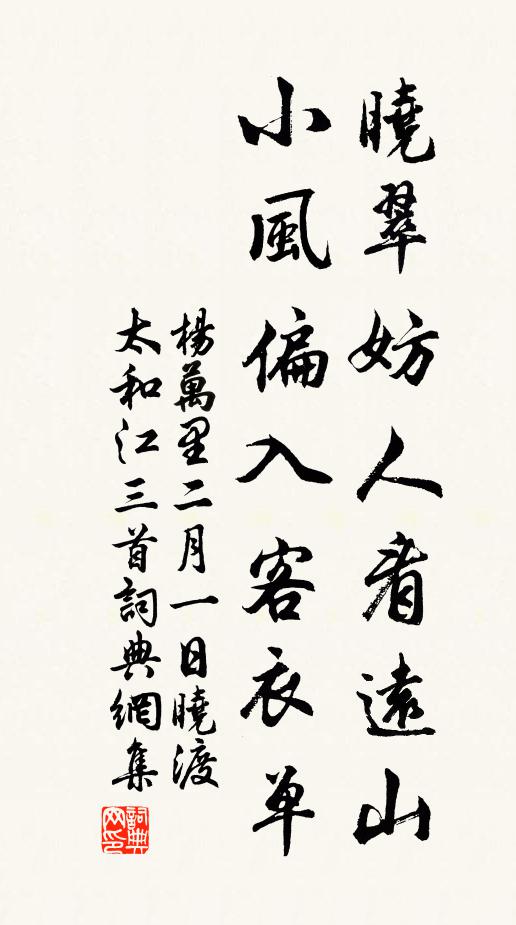 曉翠妨人看遠山
小風偏入客衣單
楊萬里二月一日曉渡
太和江三首詞典網集
詞典
网印